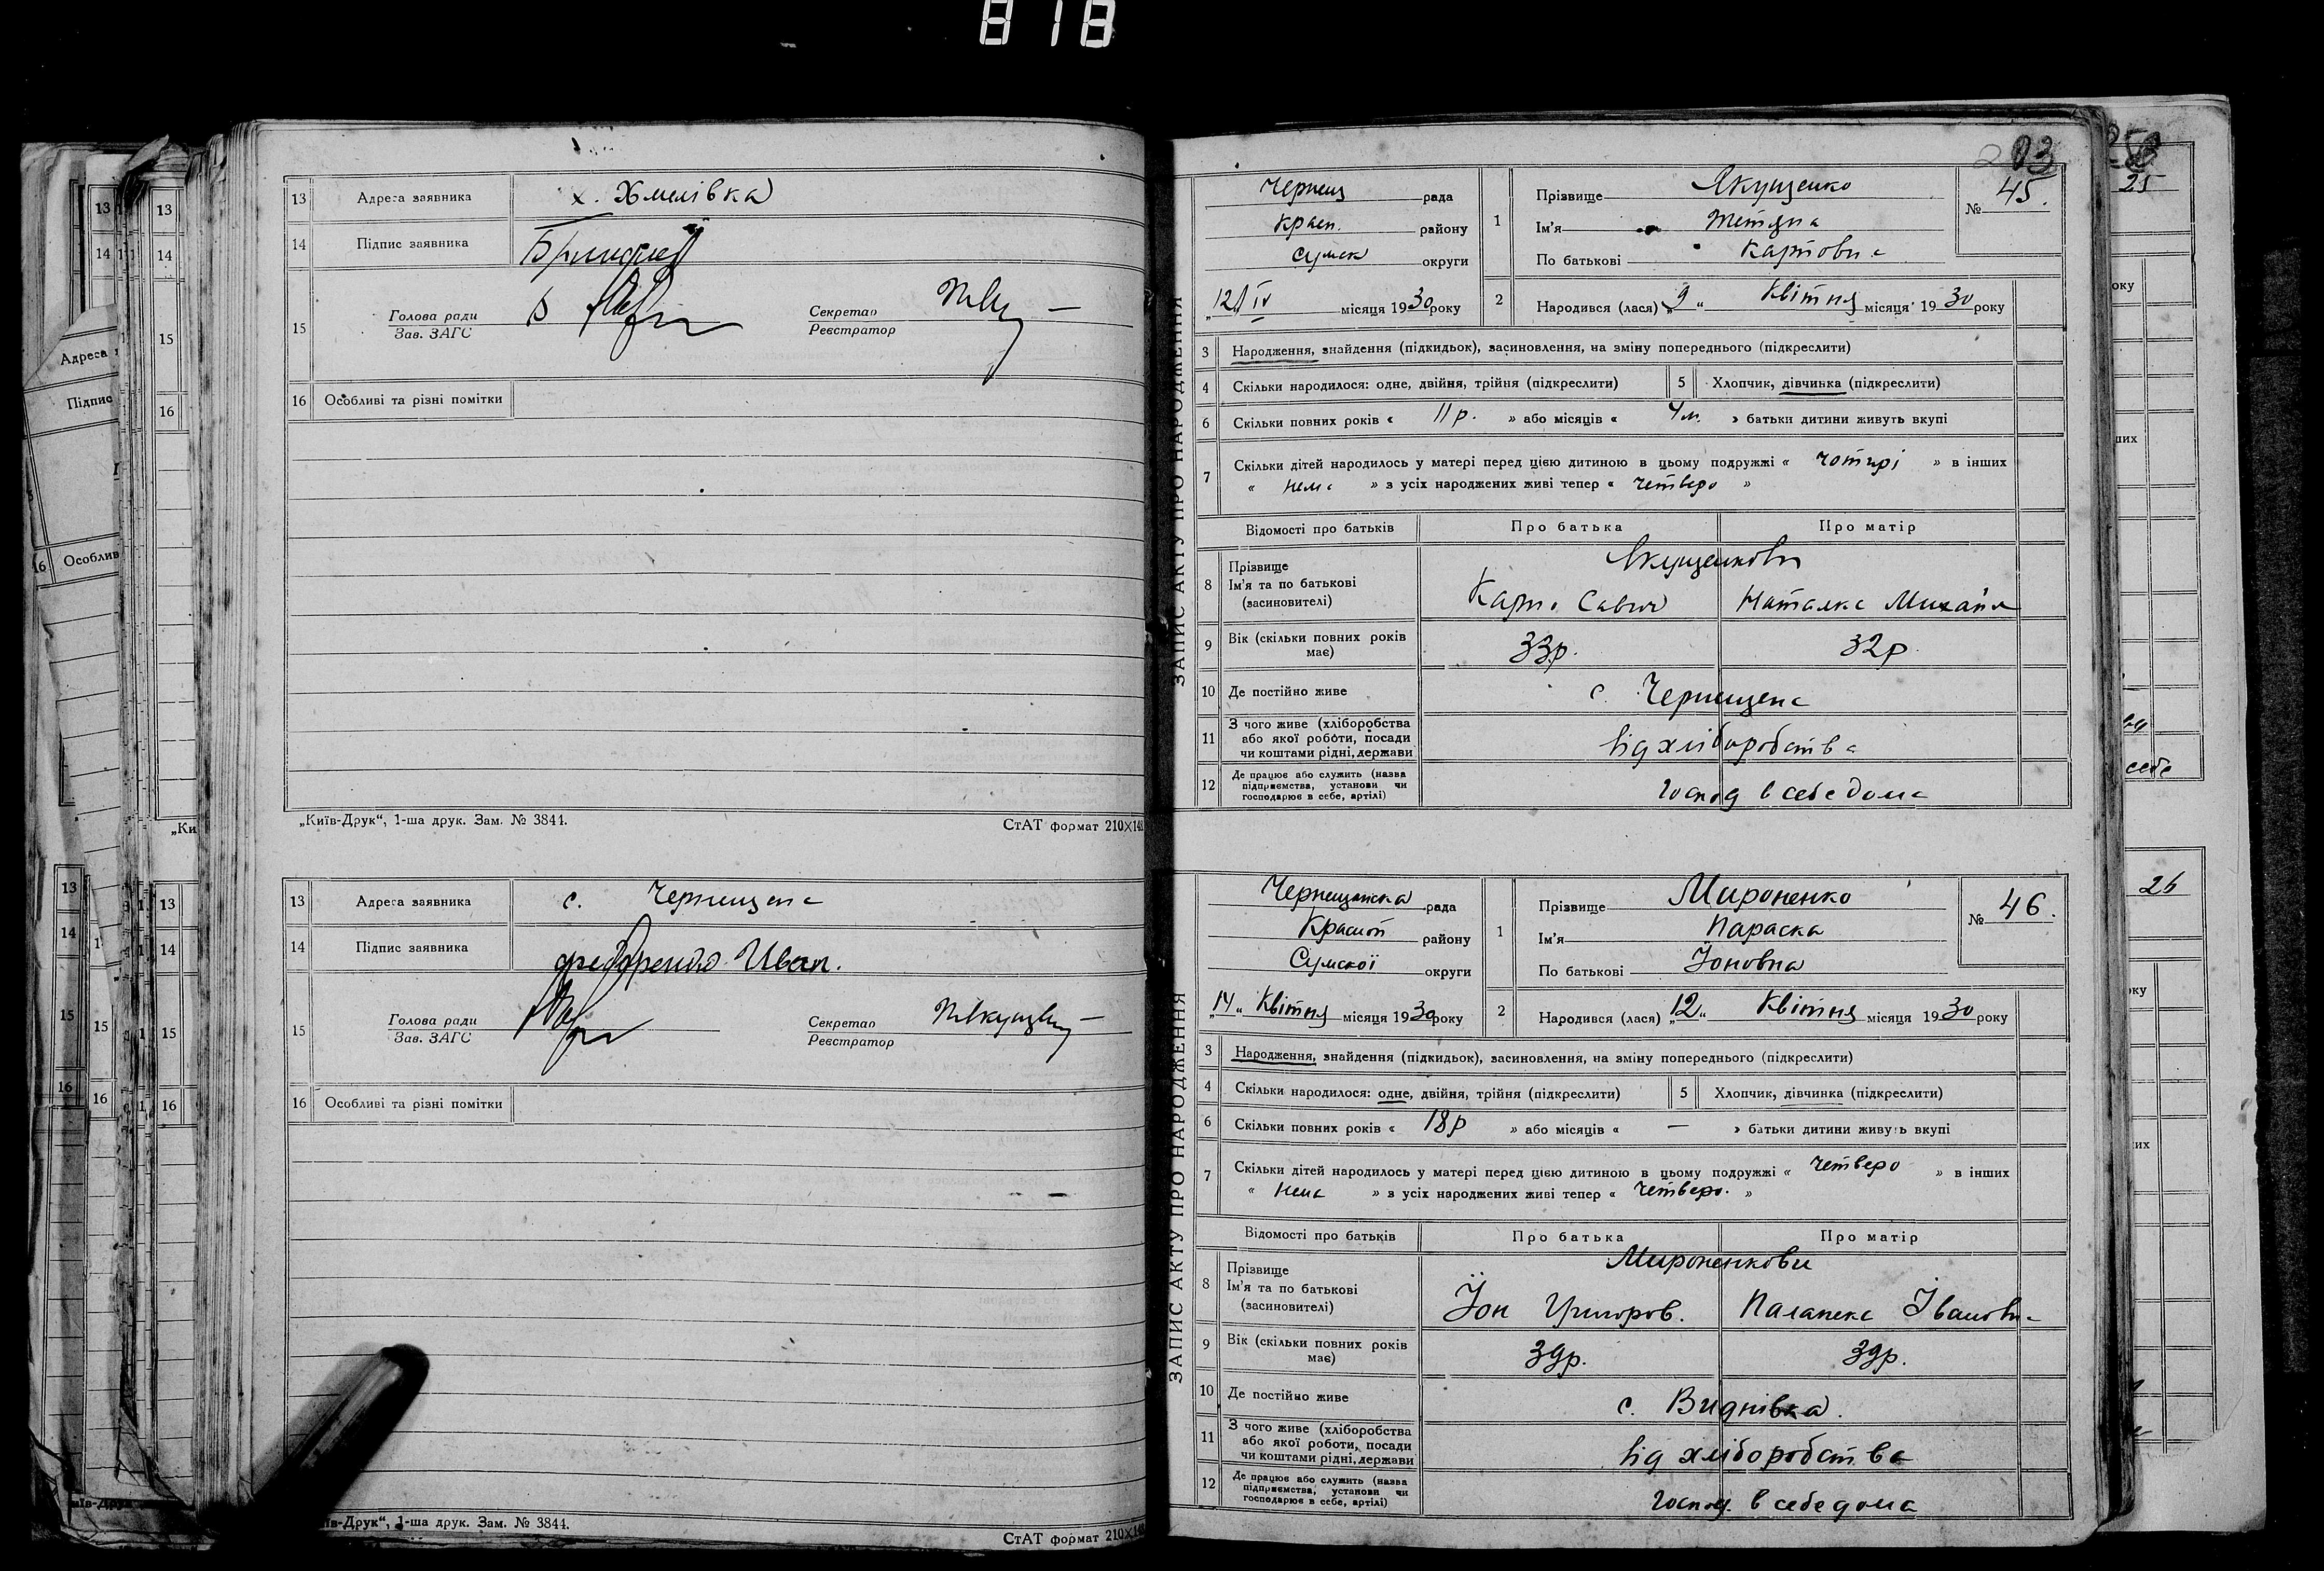 818
13 Адреса заявника х. Хмелівка
14 Підпис заявника
15 Голова ради Секретар
Зав. ЗАГС Реєстратор
16 Особливі та різні помітки
„Київ-Друк“, 1-ша друк. Зам. № 3844.
СтАТ формат 210×148
13 Адреса заявника с. Чернещена
14 Підпис заявника Федоренко Иван.
15 Голова ради Секретар
Зав. ЗАГС Реєстратор
16 Особливі та різні помітки
„Київ-Друк“, 1-ша друк. Зам. № 3844.
СтАТ формат 210×148
203
ЗАПИС АКТУ ПРО НАРОДЖЕННЯ
Чернещ рада
Красн. району
Сумск округи
„12“ IV місяця 1930 року
1 Прізвище Якущенко
Ім'я Тетяна
По батькові Карповна
№ 45.
2 Народився (лася) „9“ Квітня місяця 1930 року
3 Народження, знайдення (підкидьок), засиновлення, на зміну попереднього (підкреслити)
4 Скільки народилося: одне, двійня, трійня (підкреслити) 5 Хлопчик, дівчинка (підкреслити)
6 Скільки повних років « 11 р. » або місяців « 4 м. » батьки дитини живуть вкупі
7 Скільки дітей народилось у матері перед цією дитиною в цьому подружжі « чотирі » в інших
« нема » з усіх народжених живі тепер « четверо »
Відомості про батьків Про батька Про матір
8 Прізвище Якущенкови
Ім'я та по батькові
(засиновителі) Карпо Савич Наталка Михайл
9 Вік (скільки повних років має) 33р. 32р.
10 Де постійно живе с. Чернещена
11 З чого живе (хліборобства
або якої роботи, посади
чи коштами рідні, держави від хліборобства
12 Де працює або служить (назва
підприємства, установи чи
господарює в себе, артілі) Господ в себе дома
ЗАПИС АКТУ ПРО НАРОДЖЕННЯ
Чернещанска рада
Красноп району
Сумскої округи
„14“ Квітня місяця 1930 року
1 Прізвище Мироненко
Ім'я Параска
По батькові Йоновна
№ 46.
2 Народився (лася) „12“ Квітня місяця 1930 року
3 Народження, знайдення (підкидьок), засиновлення, на зміну попереднього (підкреслити)
4 Скільки народилося: одне, двійня, трійня (підкреслити) 5 Хлопчик, дівчинка (підкреслити)
6 Скільки повних років « 18р » або місяців « — » батьки дитини живуть вкупі
7 Скільки дітей народилось у матері перед цією дитиною в цьому подружжі « четверо » в інших
« нема » з усіх народжених живі тепер « четверо. »
Відомості про батьків Про батька Про матір
8 Прізвище Мироненкови
Ім'я та по батькові
(засиновителі) Йон Григоров. Палажка Івановна
9 Вік (скільки повних років має) 39р. 39р.
10 Де постійно живе с. Виднівка.
11 З чого живе (хліборобства
або якої роботи, посади
чи коштами рідні, держави від хліборобства
12 Де працює або служить (назва
підприємства, установи чи
господарює в себе, артілі) Господ. в себе дома
25
26